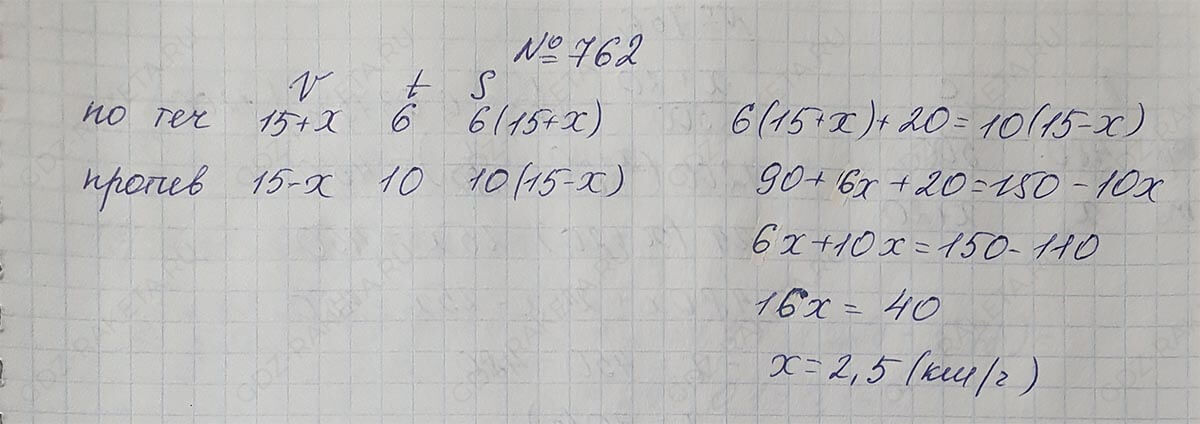 № 762
V t S
по теч 15+x 6 6(15+x) 6(15+x)+20=10(15-x)
против 15-x 10 10(15-x) 90+6x+20=150-10x
6x+10x=150-110
16x = 40
x=2,5 (км/г)